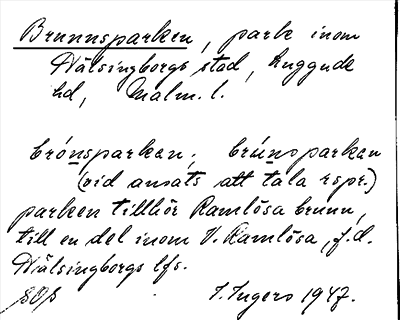 Brunnsparken, park inom
Hälsingborgs stad, Luggude
hd, Malm. l.
brónsparken; brúnsparken
(vid ansats att tala rspr.)
parken tillhör Ramlösa brunn,
till en del inom V. Ramlösa, f.d.
Hälsingborgs lfs.
I. Ingers 1947.